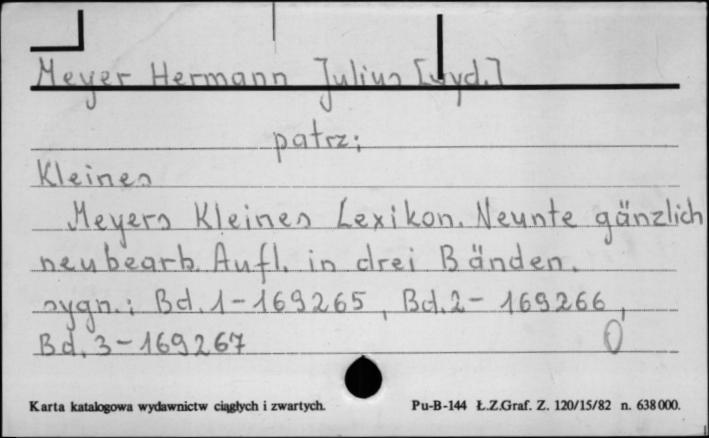 Meyer Hermann Julius [wyd.]
patrz:
Kleines
Meyers Kleines Lexikon. Neunte gänzlich
neubearb. Aufl. in drei Bänden.
sygn.: Bd. 1-169265, Bd. 2- 169266,
Bd. 3-169267
0
Karta katalogowa wydawnictw ciągłych i zwartych. Pu-B-144 Ł.Z.Graf. Z. 120/15/82 n. 638000.